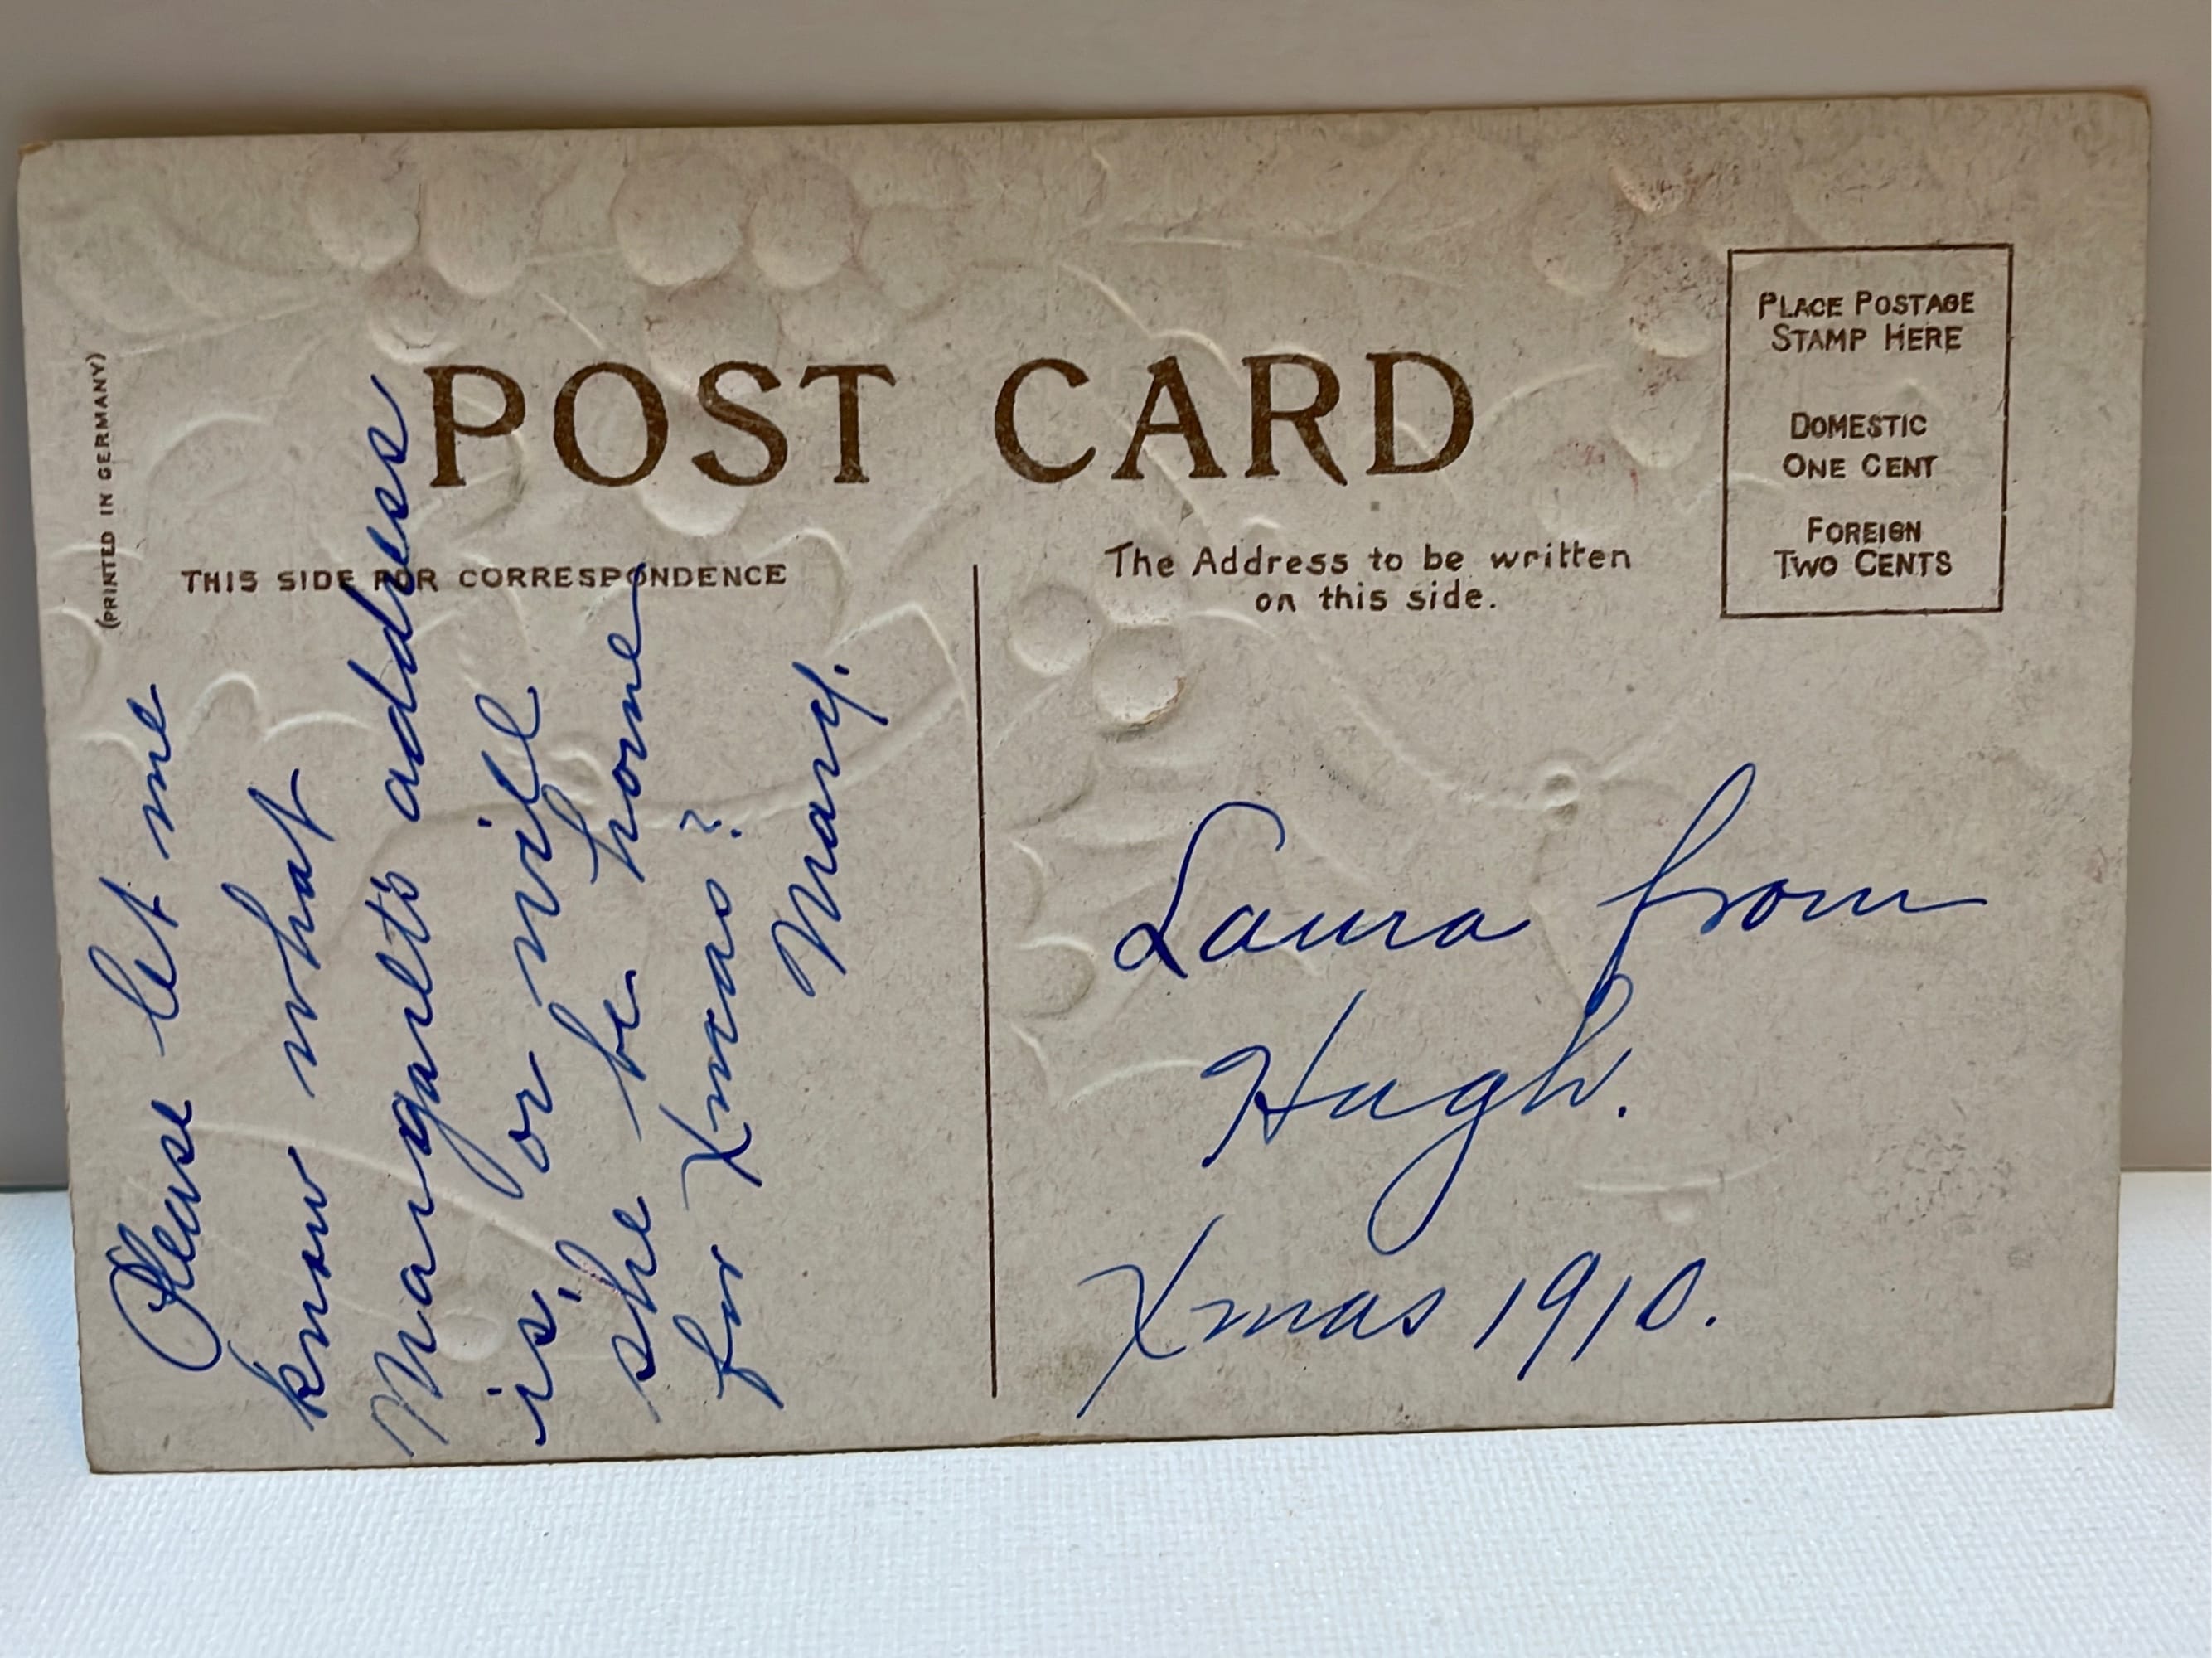 POST CARD
(PRINTED IN GERMANY)
THIS SIDE FOR CORRESPONDENCE
Please let me
know what
Margaret's address
is, or will
she be home
for Xmas?
Mary.
The Address to be written
on this side.
PLACE POSTAGE
STAMP HERE
DOMESTIC
ONE CENT
FOREIGN
TWO CENTS
Laura from
Hugh.
Xmas 1910.